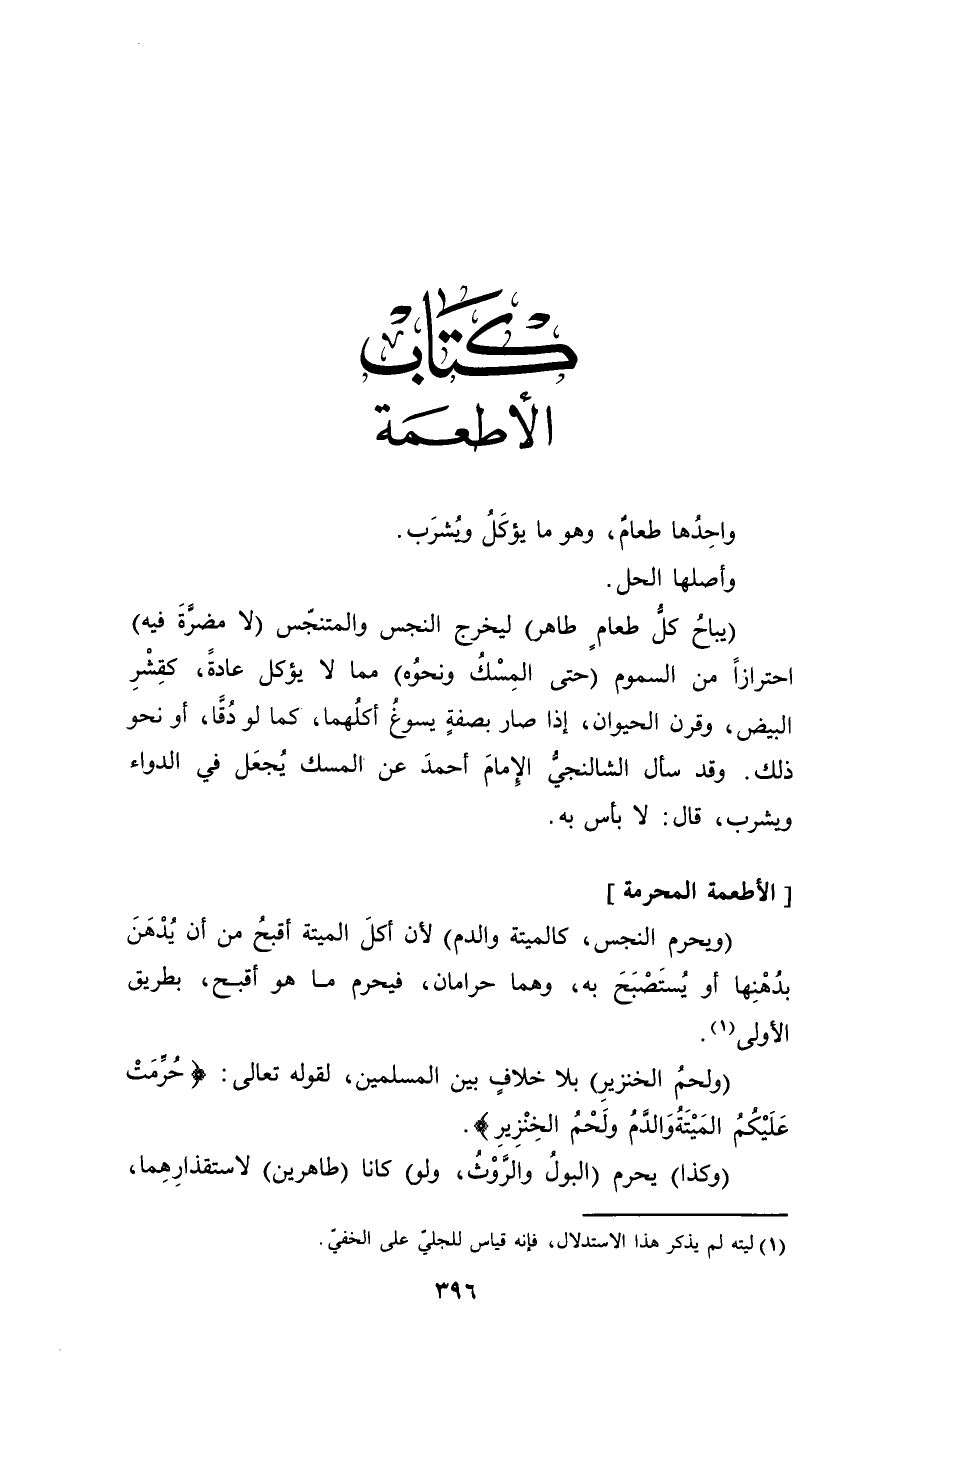 كِتَابُ
الأطعـمَة
واحِدُها طعامٌ، وهو ما يؤكَلُ ويُشرَب.
وأصلها الحل.
(يباحُ كلُّ طعامٍ طاهر) ليخرج النجس والمتنجّس (لا مضرَّةَ فيه)
احترازاً من السموم (حتى المِسْكُ ونحوُه) مما لا يؤكل عادةً، كقِشْرِ
البيض، وقرن الحيوان، إذا صار بصفةٍ يسوغُ أكلُهما، كما لو دُقَّا، أو نحو
ذلك. وقد سأل الشالنجيُّ الإِمامَ أحمدَ عن المسك يُجعَل في الدواء
ويشرب، قال: لا بأس به.
[ الأطعمة المحرمة ]
(ويحرم النجس، كالميتة والدم) لأن أكلَ الميتة أقبحُ من أن يُدْهَنَ
بدُهْنِها أو يُستَصْبَحَ به، وهما حرامان، فيحرم مـا هو أقبـح، بطريق
الأولى(١).
(ولحمُ الخنزيرِ) بلا خلافٍ بين المسلمين، لقوله تعالى: ﴿حُرِّمَتْ
عَلَيْكُمُ المَيْتَةُ وَالدَّمُ ولَحْمُ الخِنْزِيرِ﴾.
(وكذا) يحرم (البولُ والرَّوْثُ، ولو) كانا (طاهرين) لاستقذارِهِما،
(١) ليته لم يذكر هذا الاستدلال، فإنه قياس للجليّ على الخفيّ.
٣٩٦